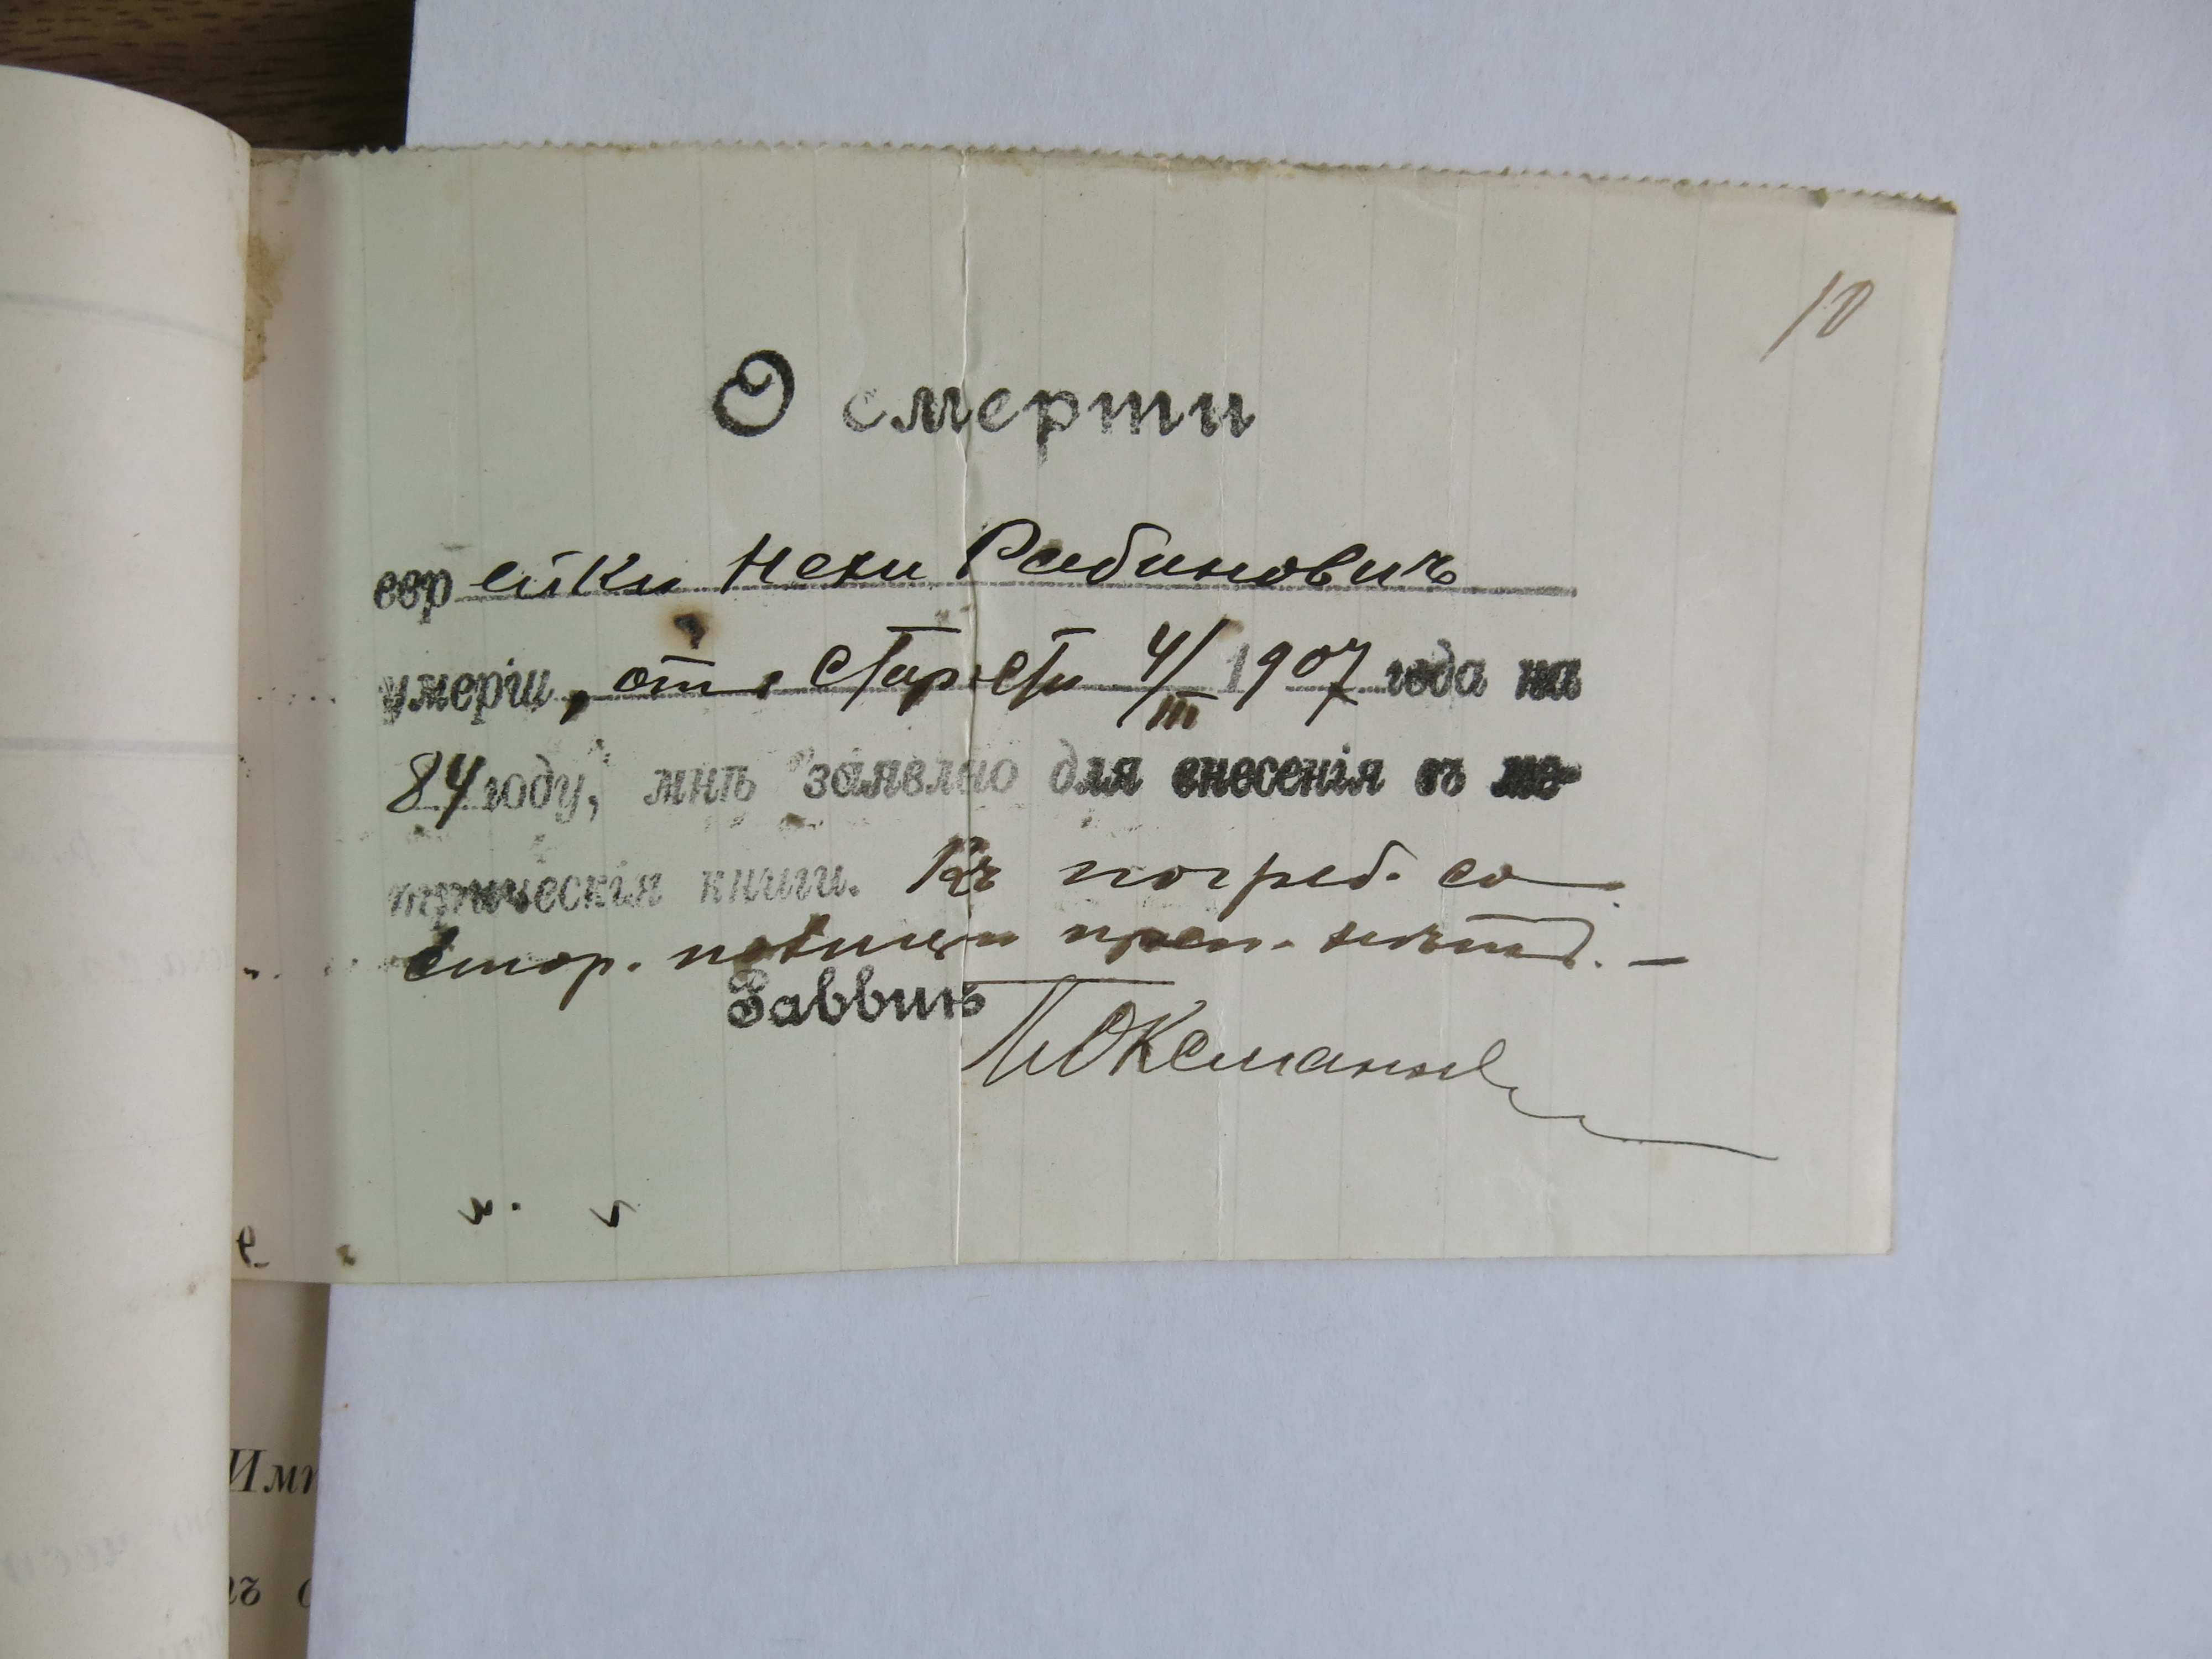 10
О смерти
еврейки Нехи Рабиновичъ
умерш, отъ старости 4/III 1907 года на
84 году, мнѣ заявлено для внесенія въ ме-
трическія книги. Къ погреб. со
стор. полиціи преп. нѣтъ. —
Завѣд.
Имп